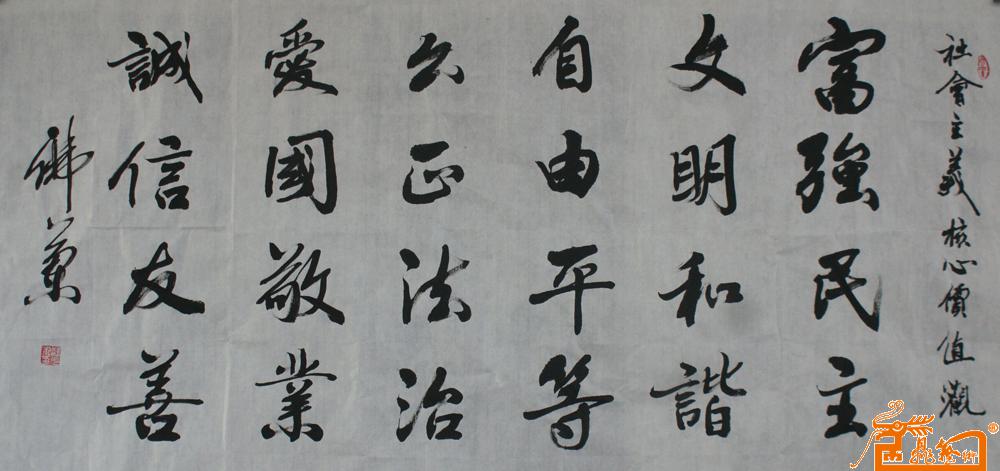 社會主義核心價值觀
富強民主
文明和諧
自由平等
公正法治
愛國敬業
誠信友善